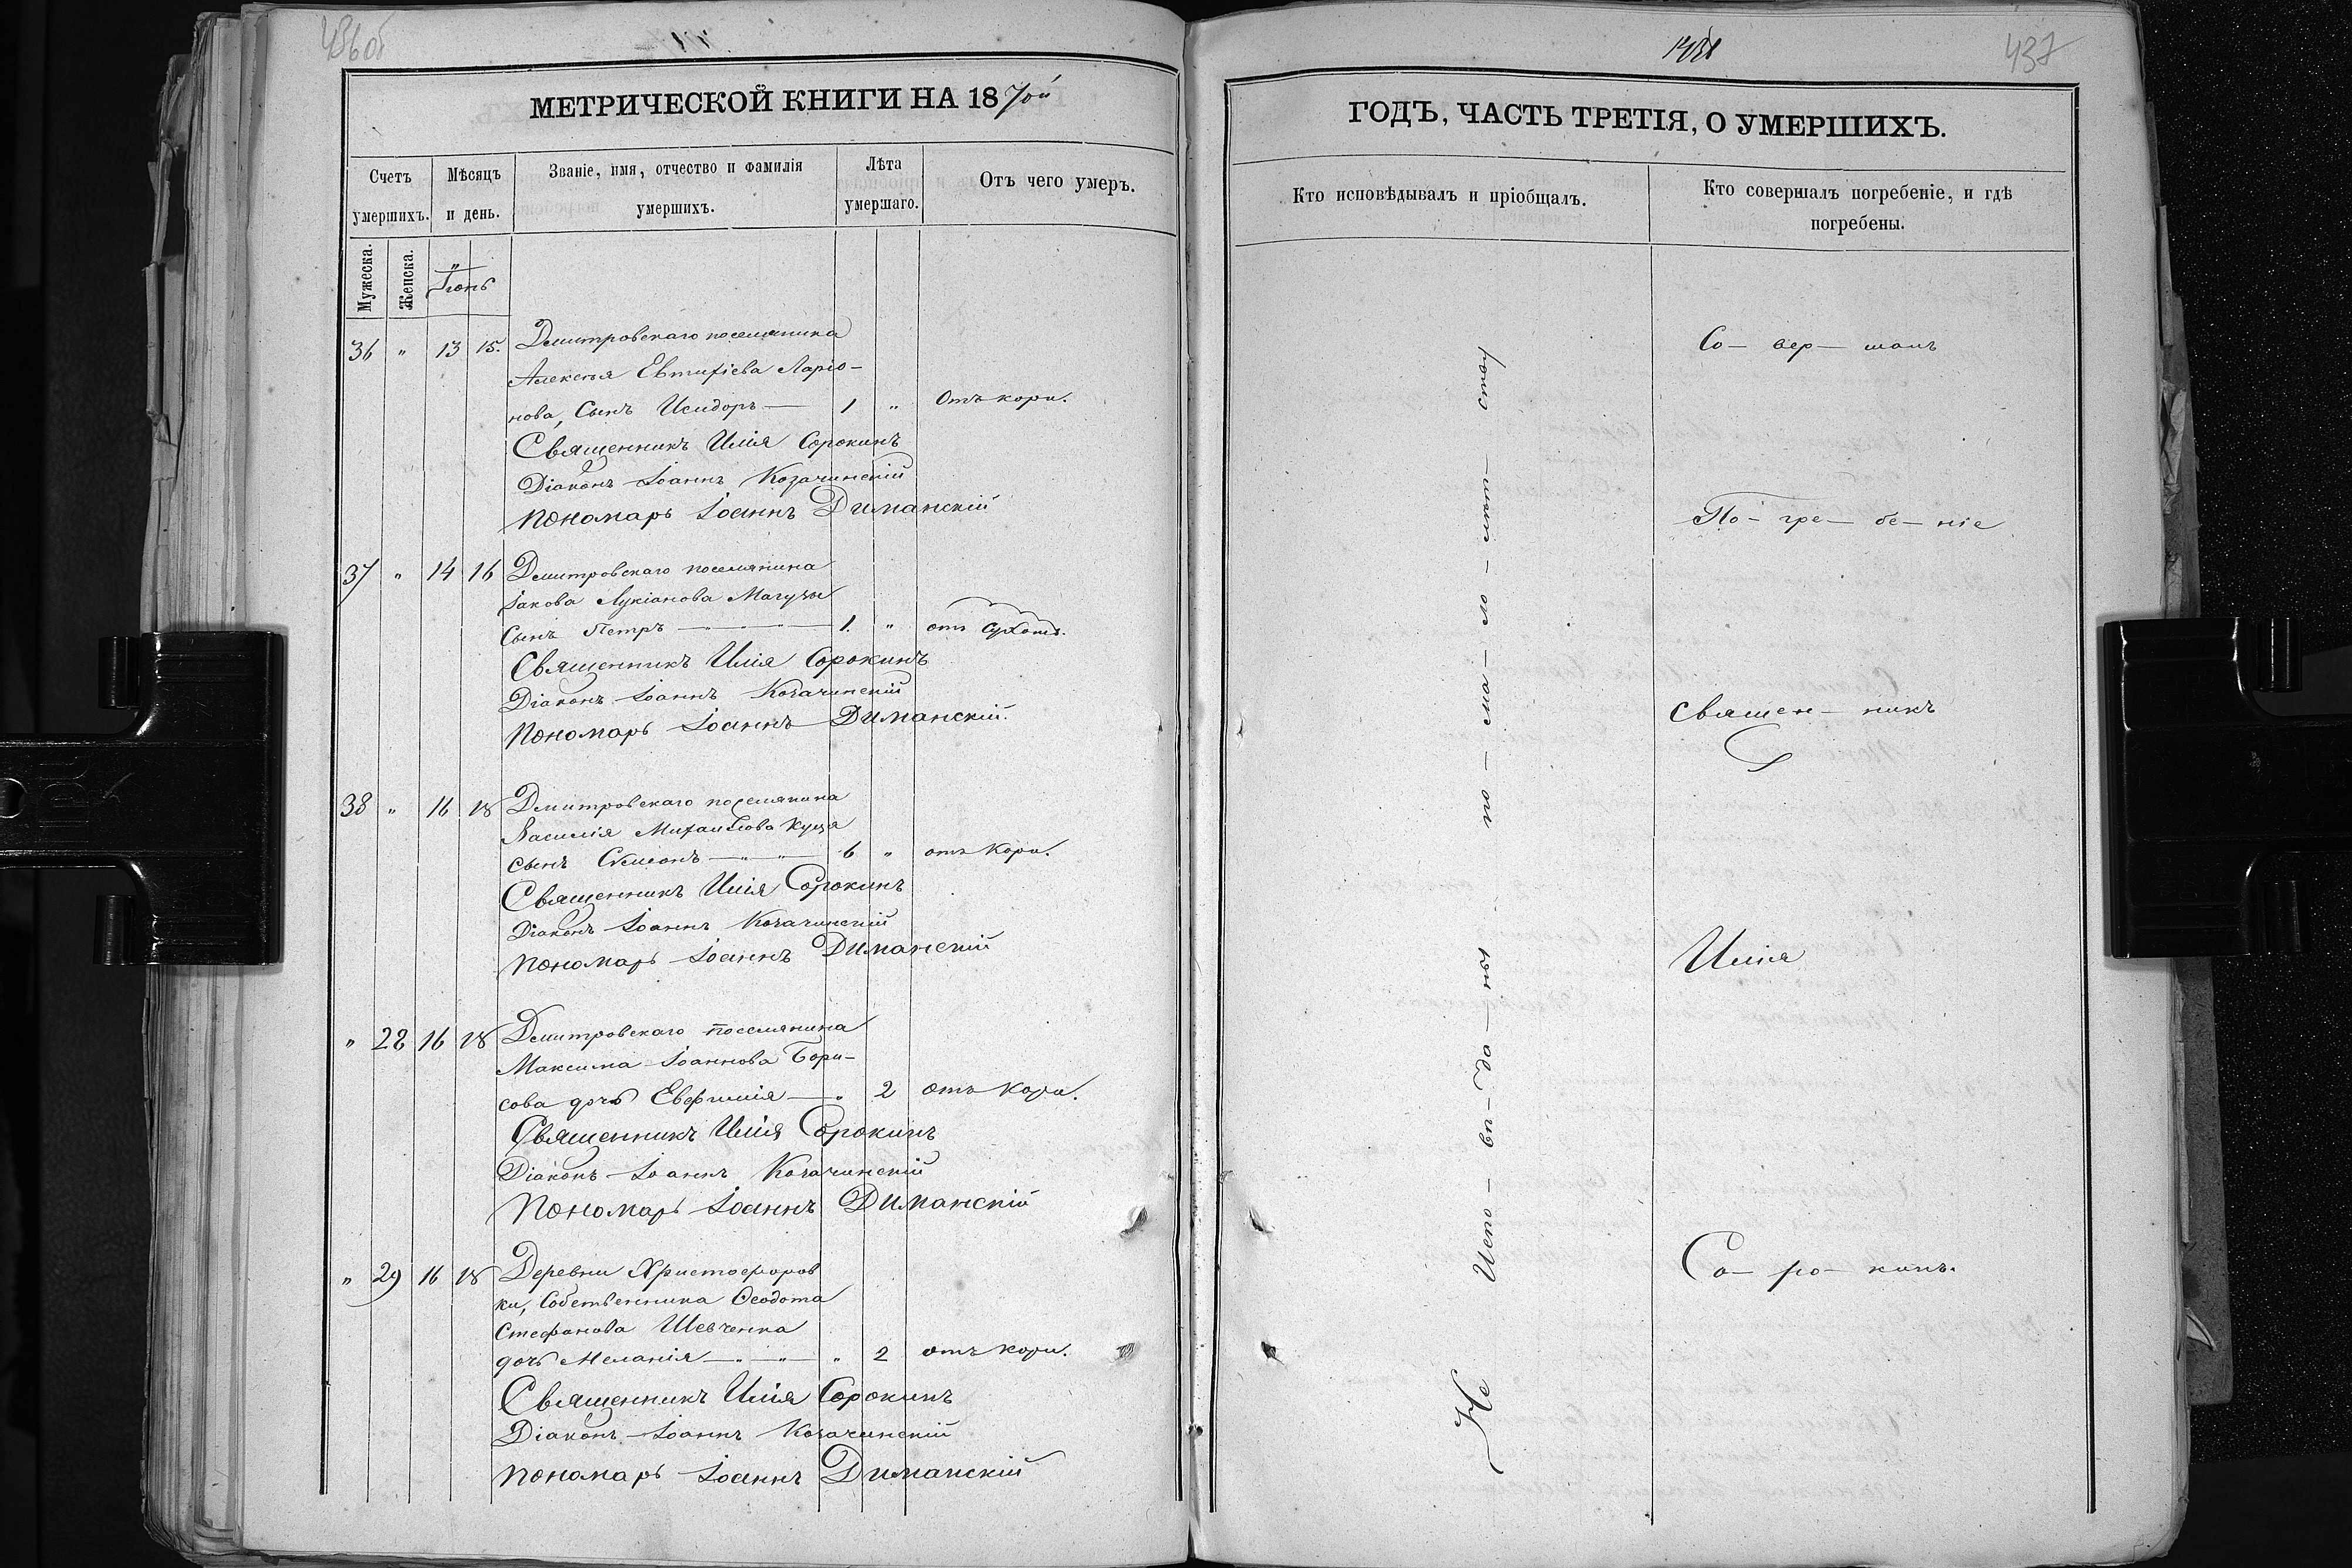 436об
МЕТРИЧЕСКОЙ КНИГИ НА 1870й
Счетъ умершихъ.
Мѣсяцъ и день.
Званіе, имя, отчество и фамилія умершихъ.
Лѣта умершаго.
Отъ чего умеръ.
Мужеска.
Женска.
Іюнь
36 " 13 15. Дмитровскаго поселянина
Алексѣя Евтихіева Ларіо-
нова, Сынъ Исидоръ — 1 " Отъ кори.
Священникъ Илія Сорокинъ
Діаконъ Іоаннъ Козачинскій
Пономарь Іоаннъ Диманскій
37 " 14 16 Дмитровскаго поселянина
Іакова Лукіанова
Сынъ Петръ — 1. " отъ сухотъ.
Священникъ Илія Сорокинъ
Діаконъ Іоаннъ Козачинскій
Пономарь Іоаннъ Диманскій.
38 " 16 18 Дмитровскаго поселянина
Василія Михайлова Куца
сынъ Симеонъ — " — " — 6 " отъ Кори.
Священникъ Илія Сорокинъ
Діаконъ Іоаннъ Козачинскій
Пономарь Іоаннъ Диманскій
" 28 16 18 Дмитровскаго поселянина
Максима Іоаннова Бори-
сова дочь Евфимія — " 2 отъ Кори.
Священникъ Илія Сорокинъ
Діаконъ Іоаннъ Козачинскій
Пономарь Іоаннъ Диманскій
" 29 16 18 Деревни Христофоров
ки, Собственника Ѳеодота
Стефанова Шевченка
дочь Меланія — " — " — " 2 отъ кори.
Священникъ Илія Сорокинъ
Діаконъ Іоаннъ Козачинскій
Пономарь Іоаннъ Диманскій
437
ГОДЪ, ЧАСТЬ ТРЕТІЯ, О УМЕРШИХЪ.
Кто исповѣдывалъ и пріобщалъ.
Кто совершалъ погребеніе, и гдѣ
погребены.
Не Испо — вѣ — да — ны по — ма — ло — лѣт — ству
Со — вер — шалъ
По — гре — бе — ніе
Священ — никъ
Илія
Со — ро — кинъ.